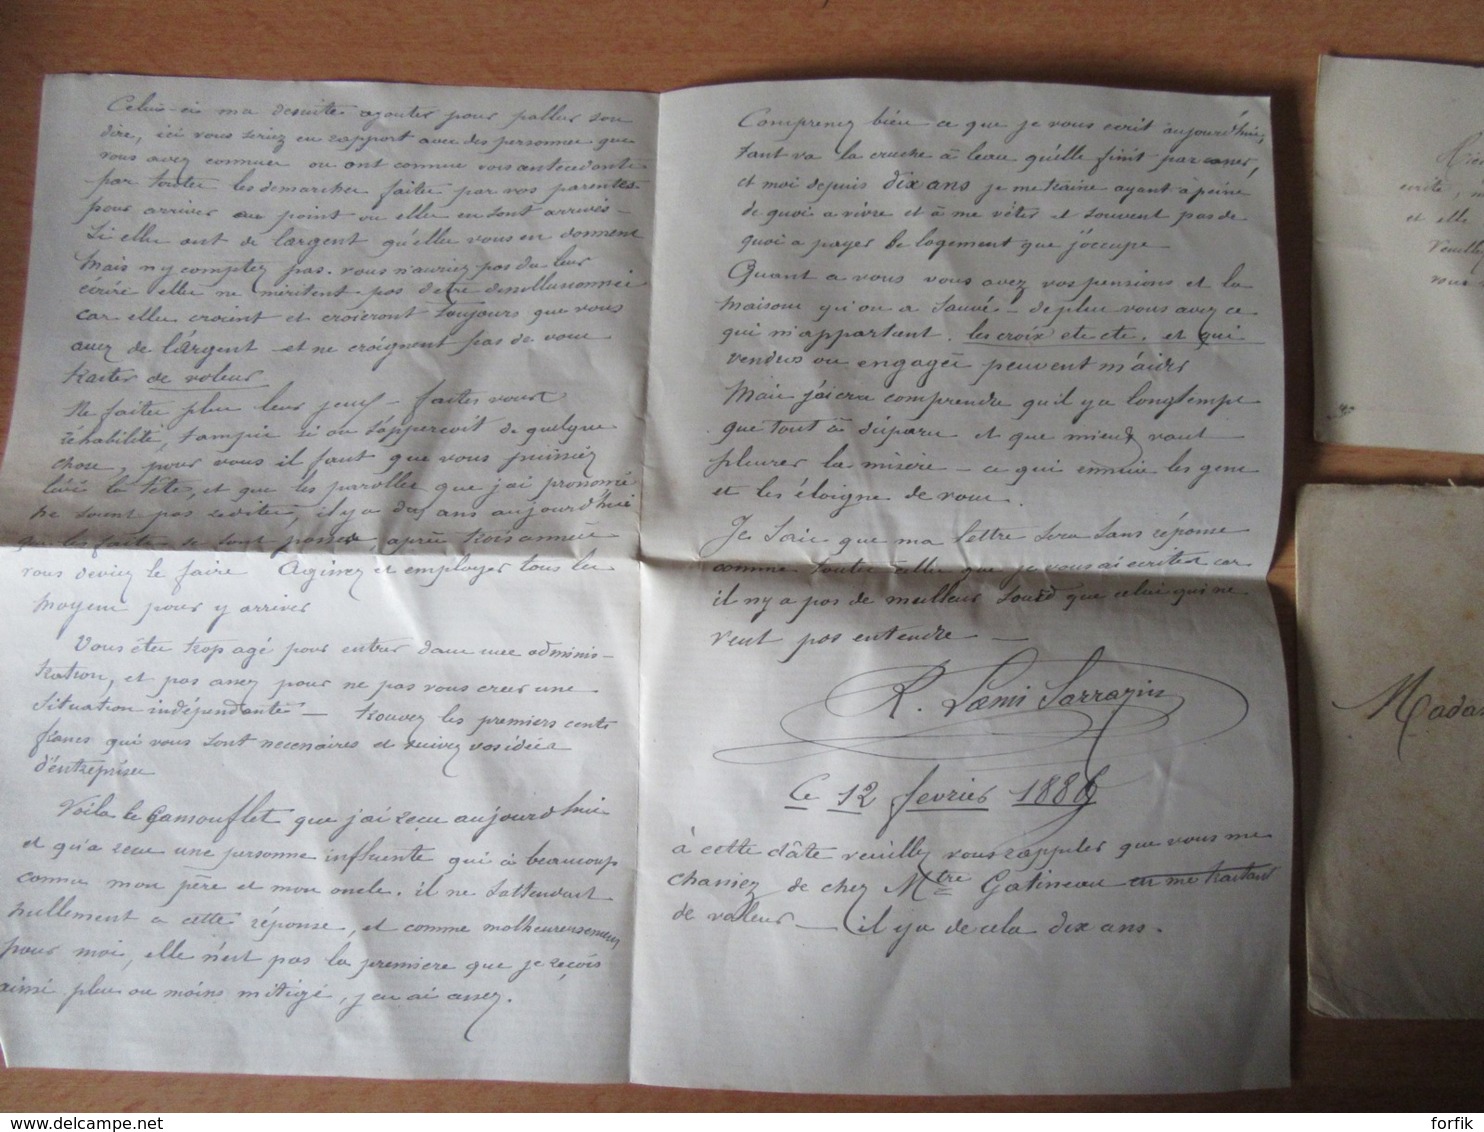 Celui-ci ma desuite ajouter pour pallier son
dire, ici vous seriez en rapport avec des personnes que
vous avez connues ou ont connue vos antécedents
par toutes les demarches faites par vos parentes
pour arriver au point ou elles en sont arrivés —
Si elles ont de l'argent qu'elles vous en donnent
Mais n'y comptez pas. vous n'auriez pas du leur
ecrire elles ne méritent pas detre desillusionnei
car elles croient et croieront toujours que vous
avez de l'argent et ne craignent pas de vous
traiter de voleur
Ne faites plus leur jeux — faites vous
réhabilité, tampis si on s'apperçoit de quelque
chose, pour vous il faut que vous puissiez
levé la tête, et que les parolles que j'ai prononcé
ne soient pas redites, il y a dix ans aujourd'hui
que les faits se sont passés, après trois années
vous deviez le faire Agissez et employez tous les
moyens pour y arriver
Vous étes trop agé pour entrer dans une adminis-
tration, et pas assez pour ne pas vous creer une
situation indépendante — trouvez les premiers cents
francs qui vous sont necessaires et suivez vos idées
d'entreprises
Voila le Camouflet que j'ai reçu aujourd'hui
et qu'a recu une personne influente qui à beaucoup
connu mon père et mon oncle. il ne s'attendait
nullement a cette réponse, et comme malheureusement
pour moi, elle n'est pas la premiere que je reçois
ainsi plus ou moins mitigé, j'en ai assez.
Comprenez bien ce que je vous ecrit aujourd'hui,
tant va la cruche à leau qu'elle finit par casser,
et moi depuis dix ans je me traine ayant à peine
de quoi a vivre et à me vêtir et souvent pas de
quoi a payer le logement que j'occupe
Quant a vous vous avez vos pensions et la
maison qu'on a sauvé — de plus vous avez ce
qui m'appartient. les croix etc etc. et qui
vendus ou engagée peuvent m'aider
Mais j'ai cru comprendre qu'il y a longtemps
que tout à disparu et que mieux vaut
pleurer la misère — ce qui ennuie les gens
et les éloigne de vous.
Je sais que ma lettre sera sans réponse
comme toutes celles que je vous ai ecrites car
il n'y a pas de meilleur sourd que celui qui ne
veut pas entendre —
Sarrazin
Ce 12 fevrier 1886
à cette dâte veuillez vous rappeler que vous me
chassiez de chez Mtre Gatineau en me traitant
de voleur — il y a de cela dix ans.
ecrite,
et elle
Veuillez
Madam
forfik